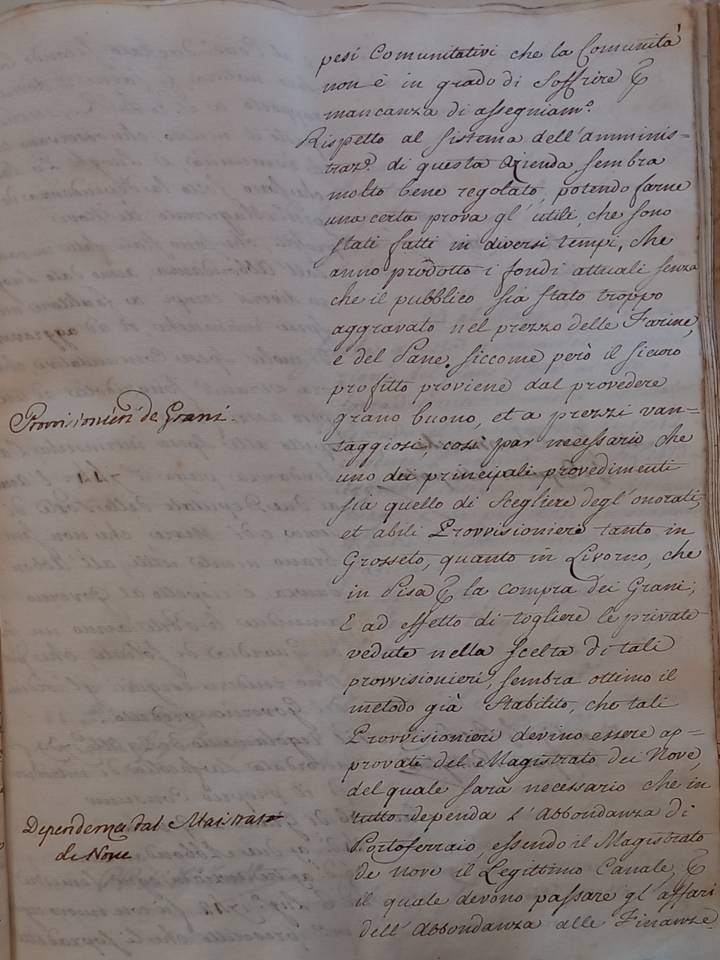 pesi Comunitativi che la Comunità
non è in grado di soffrire
mancanza di assegniam.º
Rispetto al sistema dell'amminis=
traz.e di questa Azienda sembra
molto bene regolato, potendo farne
una certa prova gl'utili, che sono
stati fatti in diversi tempi, che
anno prodotto i fondi attuali senza
che il pubblico sia stato troppo
aggravato nel prezzo delle Farine,
e del Pane. siccome però il sicuro
profitto proviene dal provedere
Provisionieri de Grani.
grano buono, et a prezzi van=
taggiosi, così par necessario che
uno dei principali provedimenti
sia quello di scegliere degl'onorati,
et abili Provvisionieri tanto in
Grosseto, quanto in Livorno, che
in Pisa la compra dei Grani;
E ad effetto di togliere le private
vedute nella scelta di tali
provvisionieri, sembra ottimo il
metodo già stabilito, che tali
Provvisionieri devino essere ap=
provati del Magistrato dei Nove,
del quale sarà necessario che in
Dependenza dal Maistrato
tutto dependa l'Abbondanza di
de Nove
Portoferraio essendo il Magistrato
de nove il Legittimo Canale
il quale devono passare gl'affari
dell'Abbondanza alle Finanze